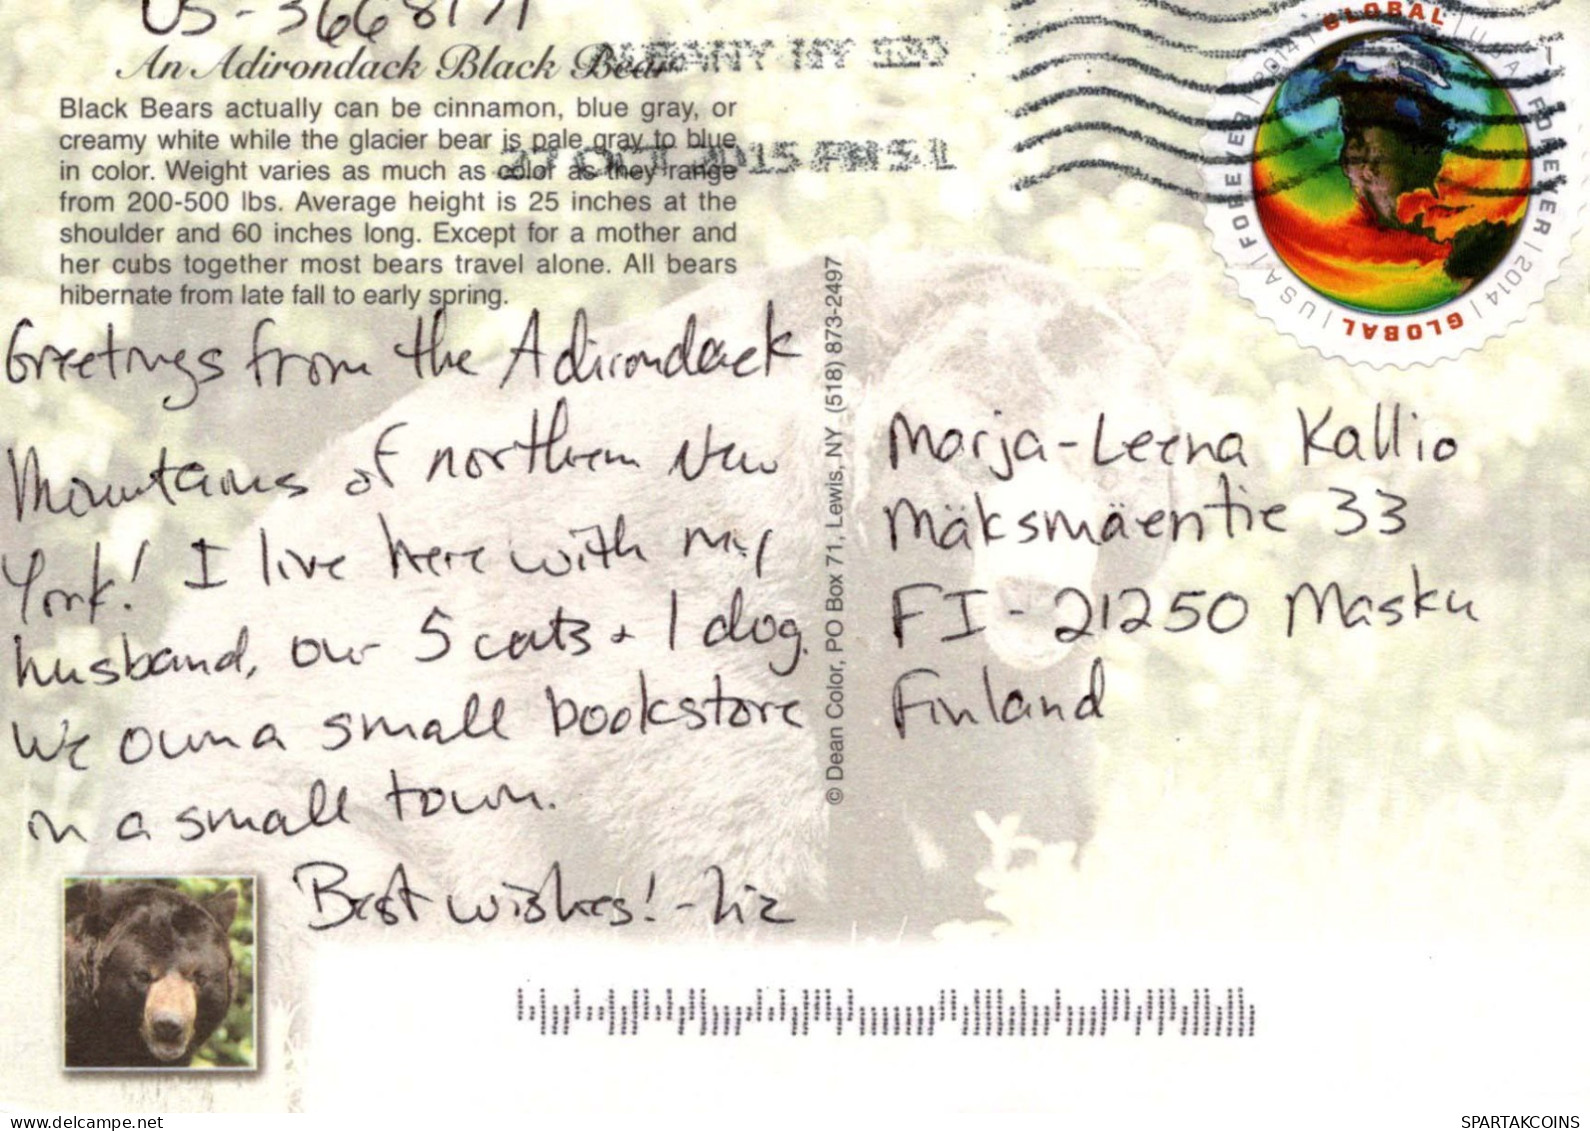 US-3668171
An Adirondack Black Bear
ALBANY NY
OCT 2015 PM 5 L
Black Bears actually can be cinnamon, blue gray, or
creamy white while the glacier bear is pale gray to blue
in color. Weight varies as much as color as they range
from 200-500 lbs. Average height is 25 inches at the
shoulder and 60 inches long. Except for a mother and
her cubs together most bears travel alone. All bears
hibernate from late fall to early spring.
Greetings from the Adirondack
Mountains of northern New
York! I live here with my
husband, our 5 cats + 1 dog.
We own a small bookstore
in a small town.
Best wishes! - Liz
© Dean Color, PO Box 71, Lewis, NY (518) 873-2497
GLOBAL | USA | FOREVER | 2014 | GLOBAL | USA | FOREVER | 2014
Marja-Leena Kallio
Mäksmäentie 33
FI - 21250 Masku
Finland
delcampe.net
SPARTAKCOINS